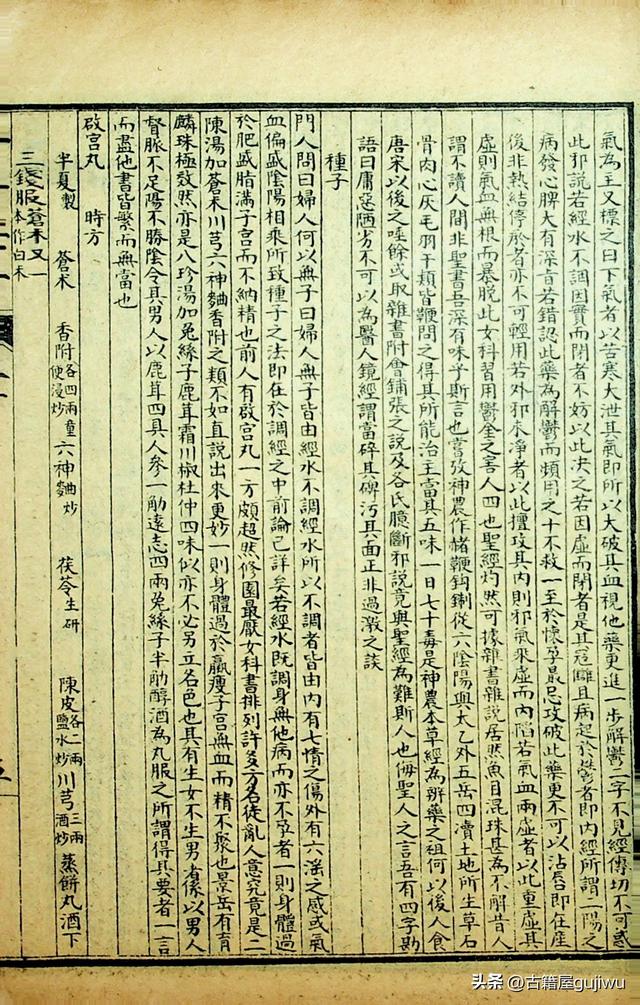 氣為主又標之曰下氣者以苦寒大泄其氣即所以大破其血視他藥更進一步解鬱二字不見經傳切不可惑
此邪說若經水不調因實而閉者不妨以此决之若因虛而閉者是其寇讎且病起於鬱者即內經所謂二陽之
病發心脾大有深旨若錯認此藥為解鬱而頻用之十不救一至於懷孕最忌攻破此藥更不可以沾唇即在產
後非熱結停於者亦不可輕用若外邪未淨者以此擅攻其內則邪氣乘虛而內陷若氣血兩虛者以此重虛其
虛則氣血無根而暴脫此女科習用鬱金之害人四也聖經灼然可據雜書雜說居然魚目混珠甚為不解昔人
謂不讀人間非聖書吾深有味乎斯言也嘗攷神農作楮鞭鈎鋓從六陰陽與太乙外五岳四瀆土地所生草石
骨肉心灰毛羽千類皆鞭問之得其所能治主當其五味一日七十毒是神農本草經為辨藥之祖何以後人食
唐宋以後之唾餘或取雜書附會鋪張之說及各氏臆斷邪說竟與聖經為難斯人也侮聖人之言吾有四字勘
語曰庸惡陋劣不可以為醫人鏡經謂當碎其碑汚其面正非過激之談
種子
門人問曰婦人何以無子曰婦人無子皆由經水不調經水所以不調者皆由內有七情之傷外有六滛之感或氣
血偏盛陰陽相乘所致種子之法即在於調經之中前論已詳矣若經水既調身無他病而亦不孕者一則身體過
於肥盛脂滿子宮而不納精也前人有啟宮丸一方頗超然修園最厭女科書排列許多方名徒亂人意究竟是二
陳湯加蒼朮川芎六神麯香附之類不如直說出來更妙一則身體過於羸瘦子宮無血而精不聚也景岳有毓
麟珠極效然亦是八珍湯加兔絲子鹿茸霜川椒杜仲四味似亦不必另立名色也其有生女不生男者係以男人
督脈不足陽不勝陰令其男人以鹿茸四具人參一觔遠志四兩兔絲子半觔醇酒為丸服之所謂得其要者一言
而盡他書皆繁而無當也
啟宮丸　時方
半夏製　蒼朮　香附各四兩童便浸炒　六神麯炒　茯苓生研　陳皮各二兩鹽水炒　川芎三兩酒炒　蒸餅丸酒下
三錢服蒼朮又一本作白朮
头条 @古籍屋gujiwu